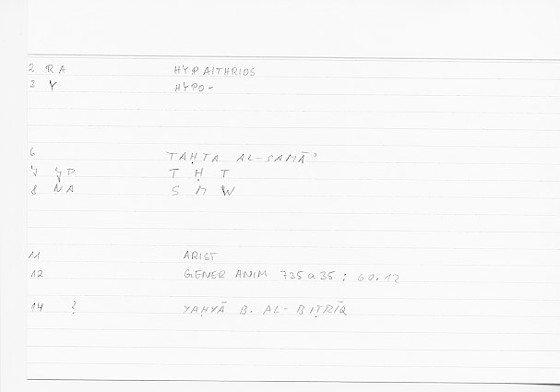 2 RA HYPAITHRIOS
3 Y HYPO-
6 TAḤTA AL-SAMĀʾ
7 YP T Ḥ T
8 NA S M W
11 ARIST
12 GENER ANIM 735a35 : 60.12
14 ? YAḤYĀ B. AL-BIṬRĪQ